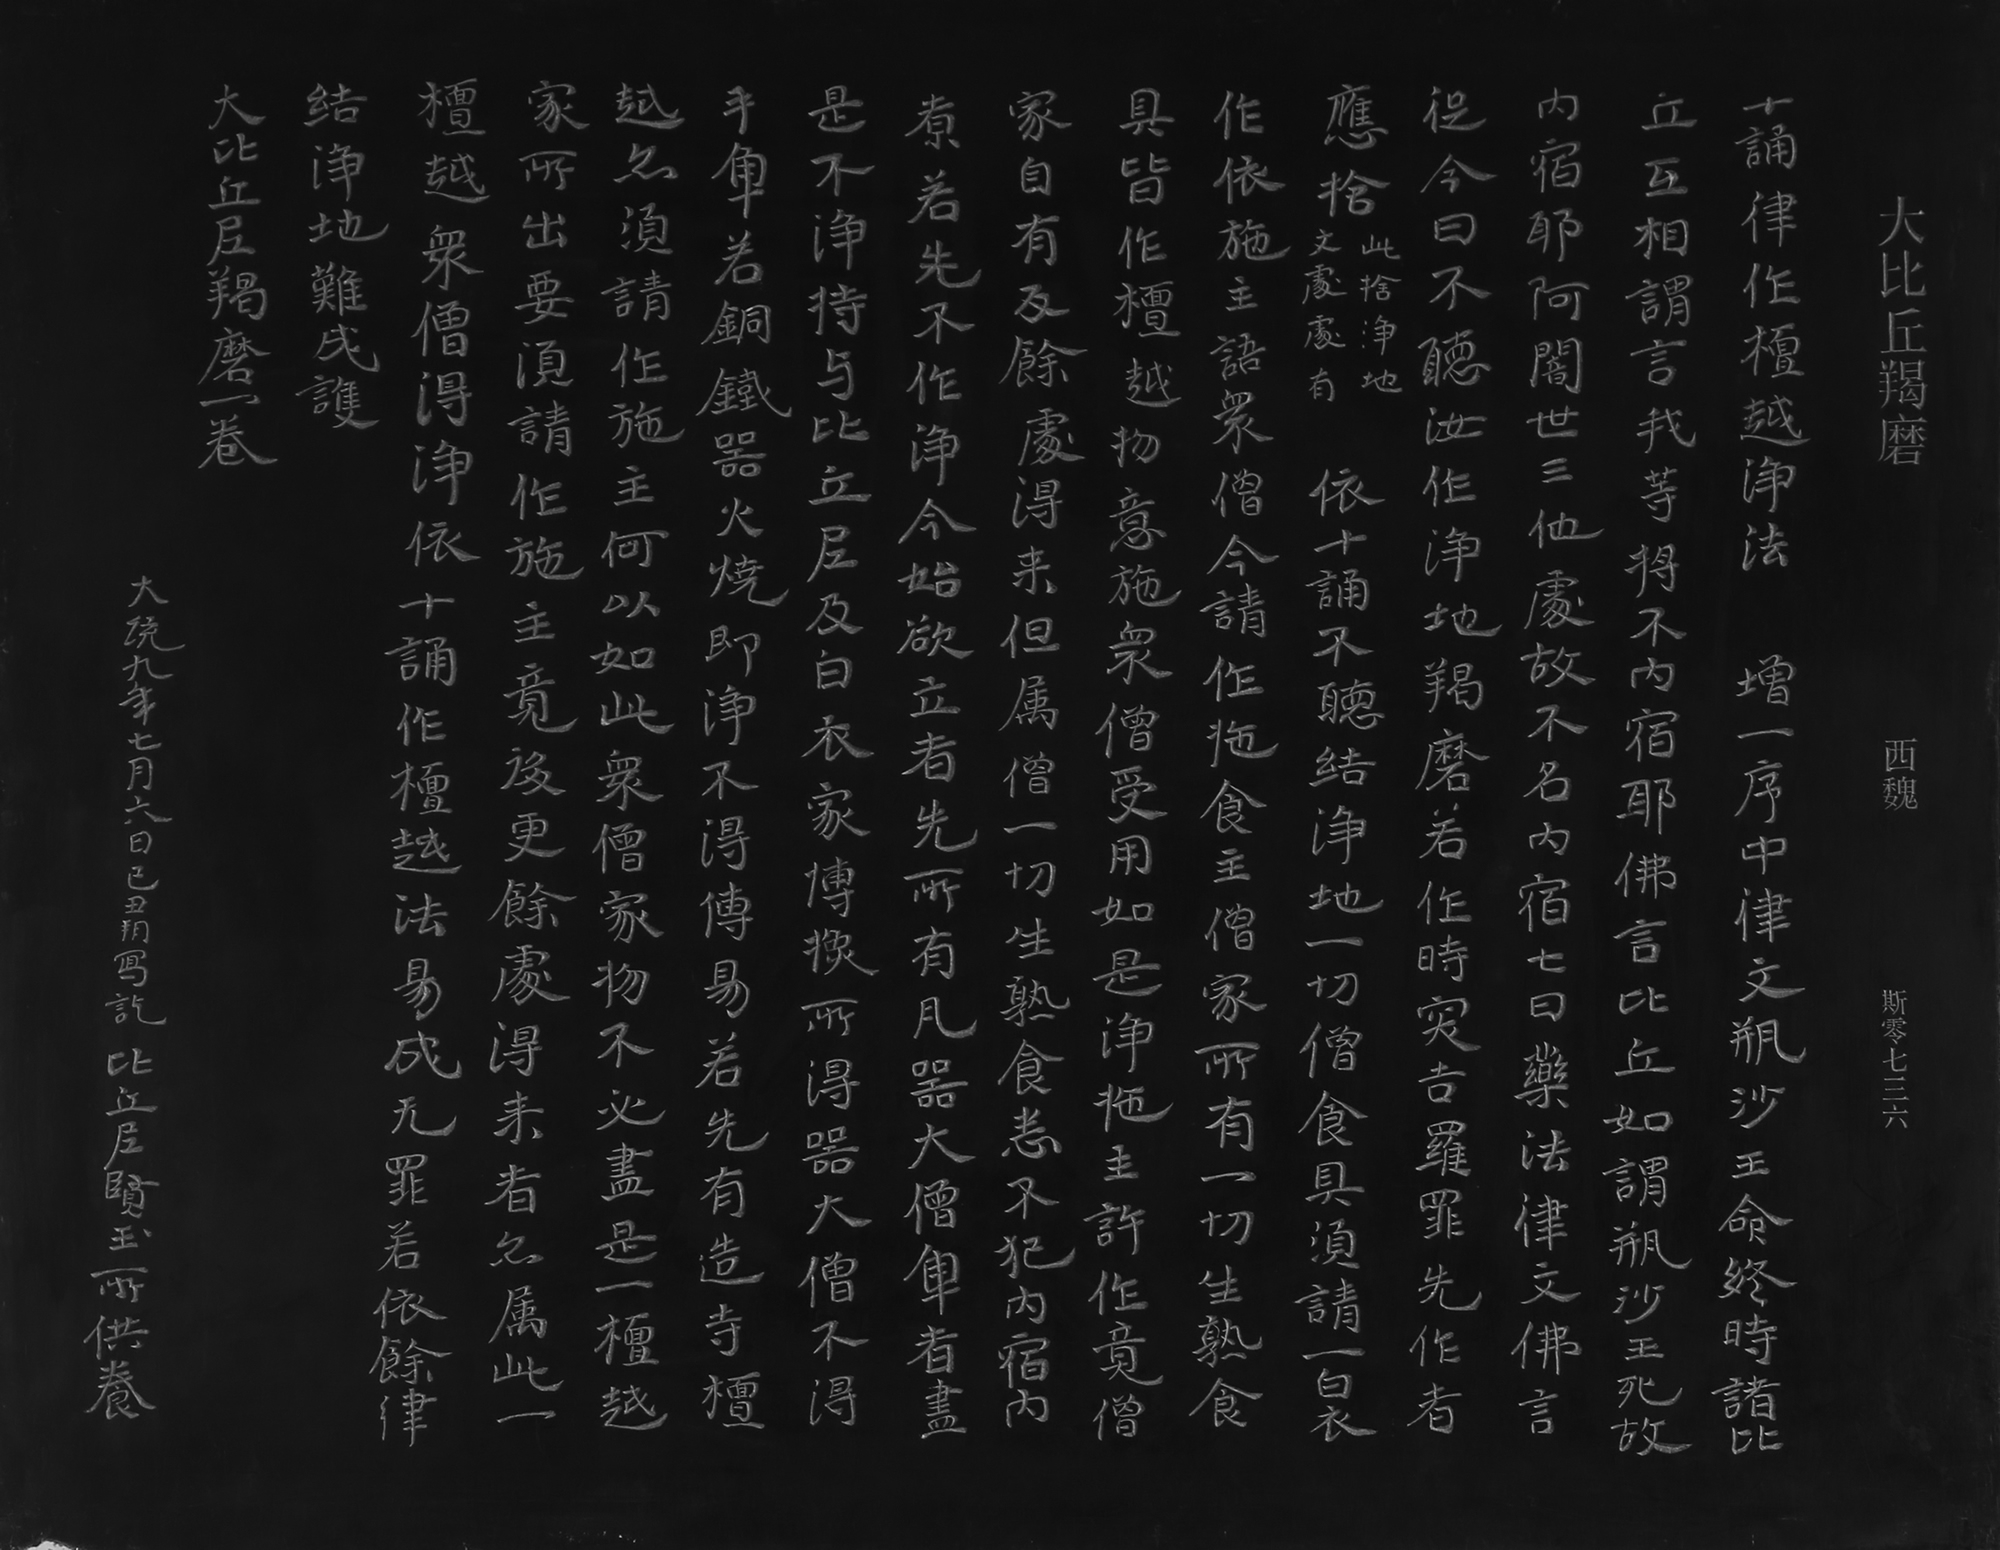 大比丘羯磨　西魏　斯零七三六
十誦律作檀越淨法　增一序中律文瓶沙王命終時諸比
丘互相謂言我等將不內宿耶佛言比丘如謂瓶沙王死故
內宿耶阿闍世王他處故不名內宿七日藥法律文佛言
從今日不聽汝作淨地羯磨若作時突吉羅罪先作者
應捨此捨淨地文處處有　依十誦不聽結淨地一切僧食具須請一白衣
作依施主語眾僧今請作施食主僧家所有一切生熟食
具皆作檀越物意施眾僧受用如是淨施主許作竟僧
家自有及餘處得来但属僧一切生熟食悉不犯內宿內
煑若先不作淨今始欲立者先所有凡器大僧車者盡
是不淨持与比丘尼及白衣家博換所得器大僧不得
手車若銅鐵器火燒即淨不得傳易若先有造寺檀
越亦須請作施主何以如此眾僧家物不必盡是一檀越
家所出要須請作施主竟後更餘處得来者亦属此一
檀越眾僧得淨依十誦作檀越法易成无罪若依餘律
結淨地難成護
大比丘尼羯磨一卷
大统九年七月六日己丑朔寫訖　比丘尼賢玉所供養